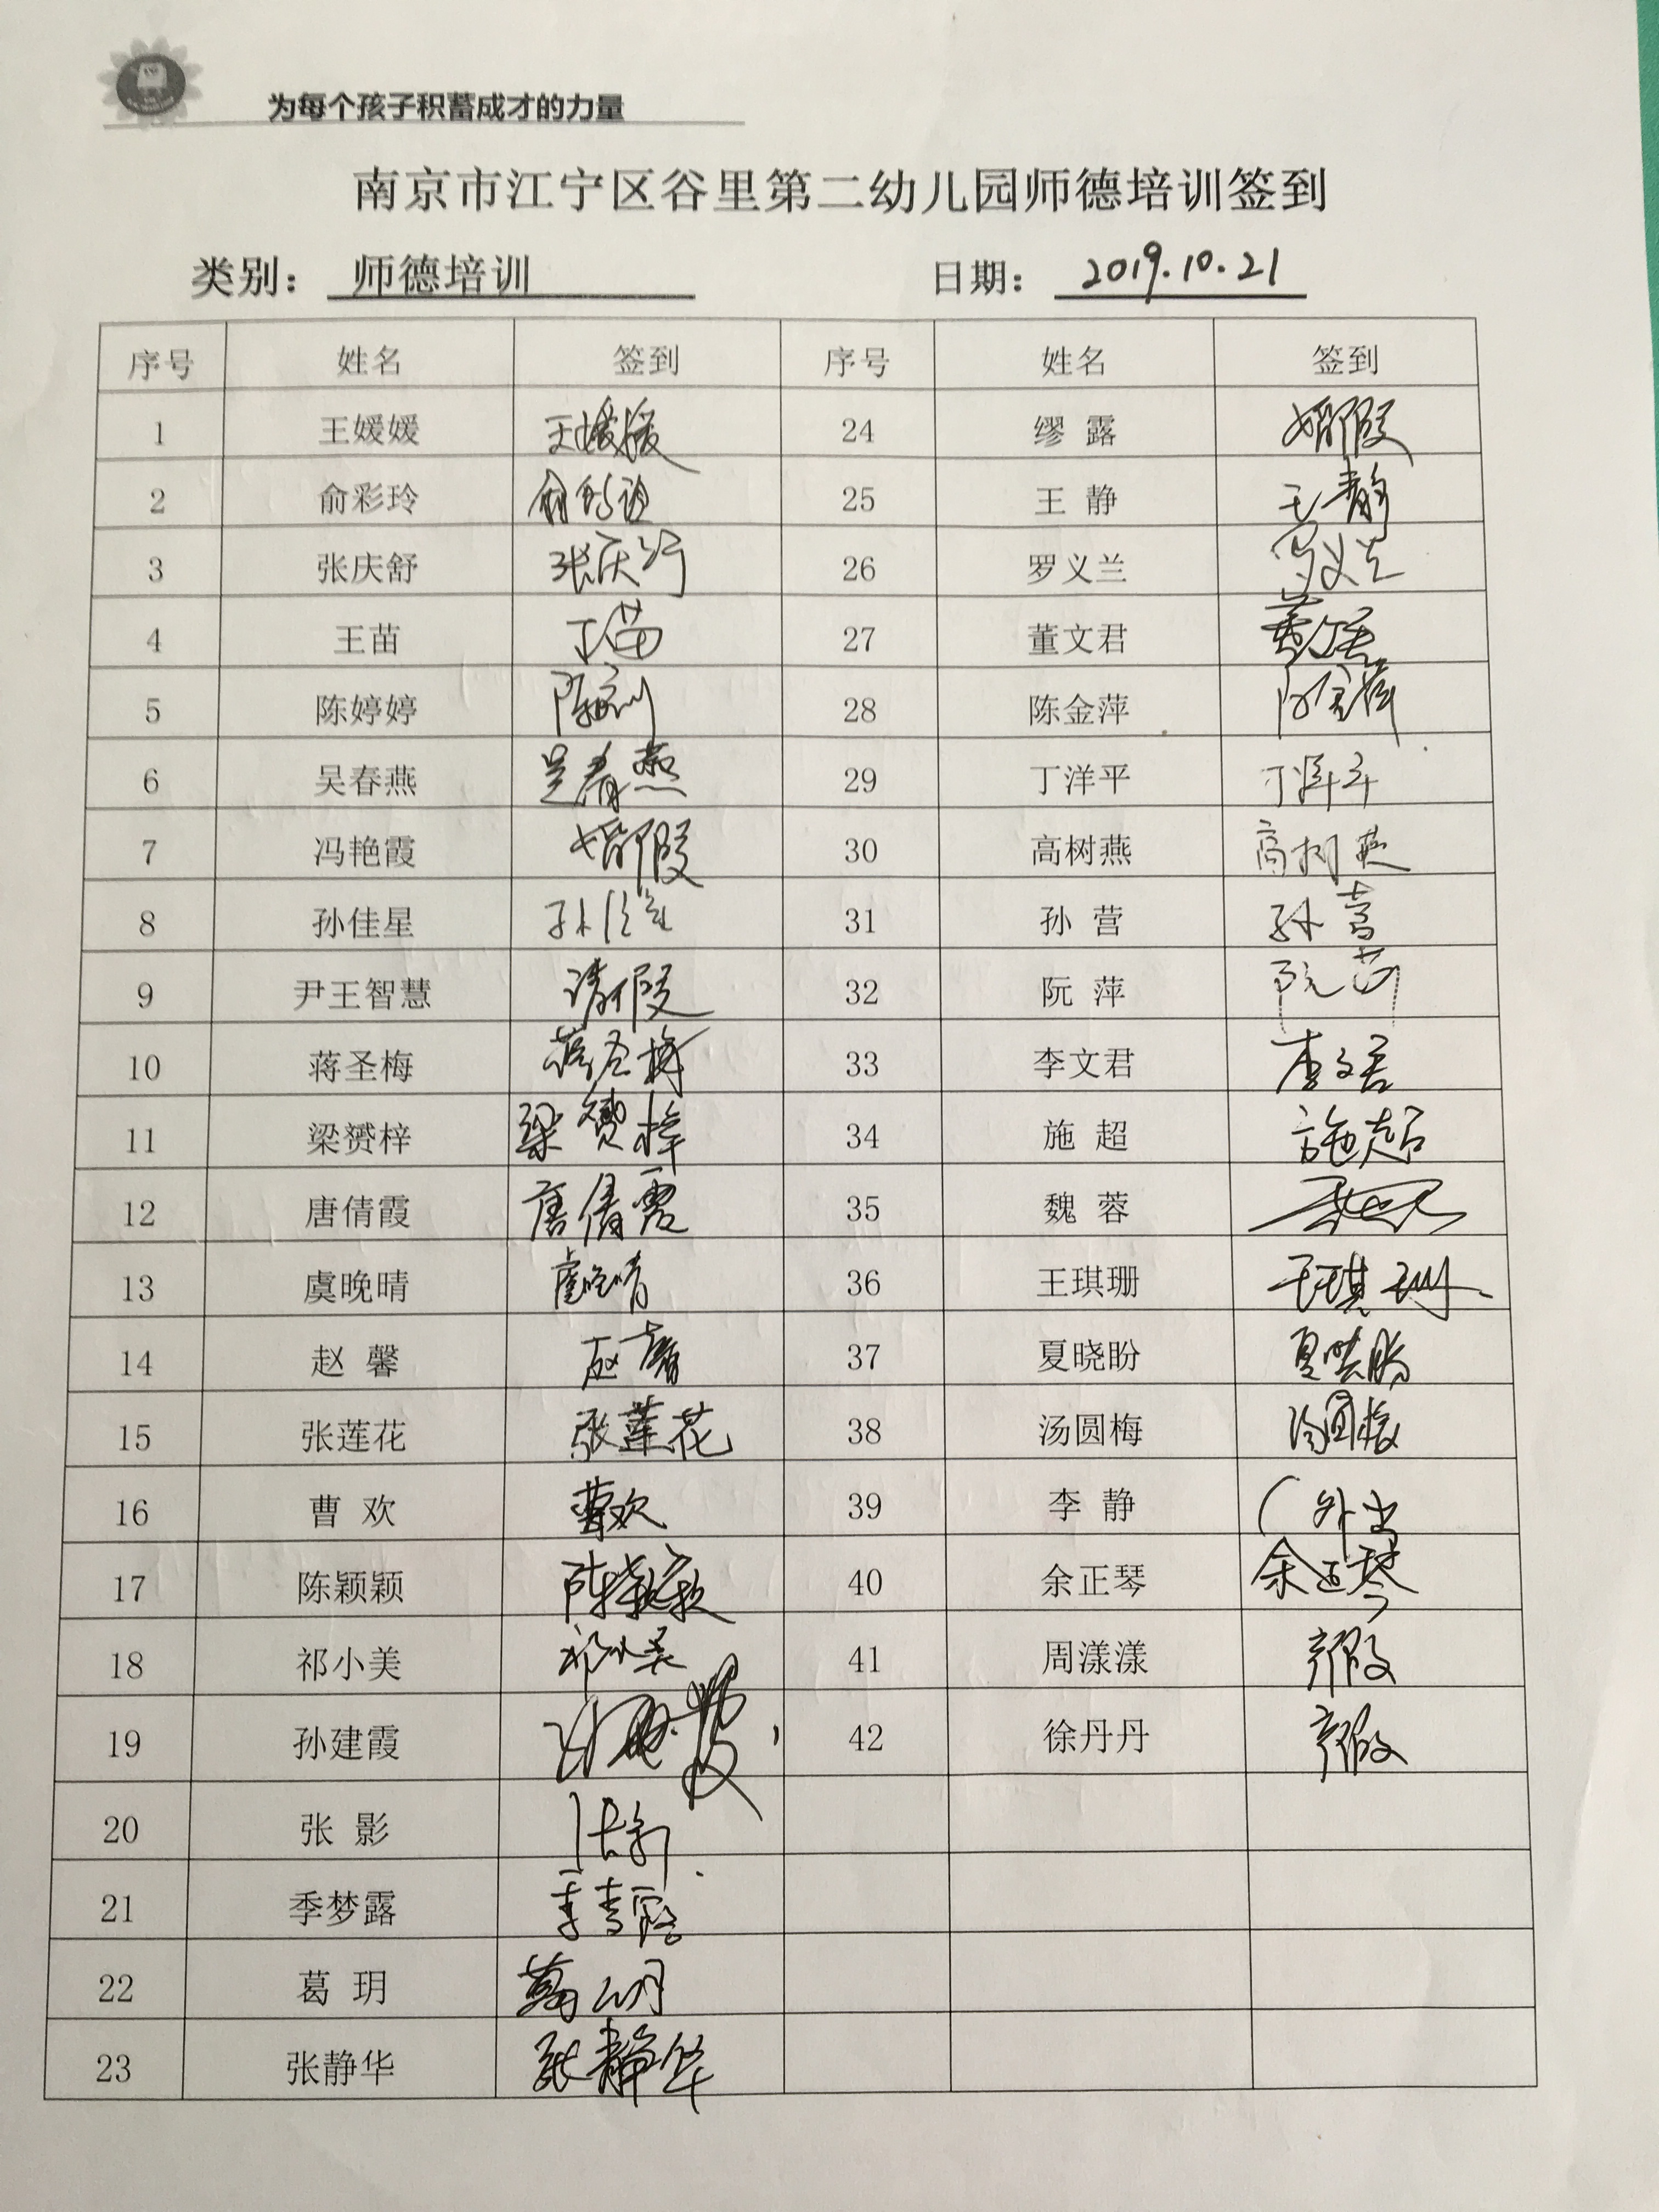 为每个孩子积蓄成才的力量
南京市江宁区谷里第二幼儿园师德培训签到
类别: 师德培训 日期: 2019.10.21
序号 姓名 签到 序号 姓名 签到
1 王媛媛 王媛媛 24 缪露 婚假
2 俞彩玲 俞彩玲 25 王静 王静
3 张庆舒 张庆舒 26 罗义兰 罗义兰
4 王苗 王苗 27 董文君 董文君
5 陈婷婷 陈婷婷 28 陈金萍 陈金萍
6 吴春燕 吴春燕 29 丁洋平 丁洋平
7 冯艳霞 婚假 30 高树燕 高树燕
8 孙佳星 孙佳星 31 孙营 孙营
9 尹王智慧 请假 32 阮萍 阮萍
10 蒋圣梅 蒋圣梅 33 李文君 李文君
11 梁赟梓 梁赟梓 34 施超 施超
12 唐倩霞 唐倩霞 35 魏蓉
13 虞晚晴 虞晚晴 36 王琪珊 王琪珊
14 赵馨 赵馨 37 夏晓盼 夏晓盼
15 张莲花 张莲花 38 汤圆梅 汤圆梅
16 曹欢 曹欢 39 李静 外出
17 陈颖颖 陈颖颖 40 余正琴 余正琴
18 祁小美 祁小美 41 周漾漾 产假
19 孙建霞 孙建霞 42 徐丹丹 产假
20 张影 张影
21 季梦露 季梦露
22 葛玥 葛玥
23 张静华 张静华